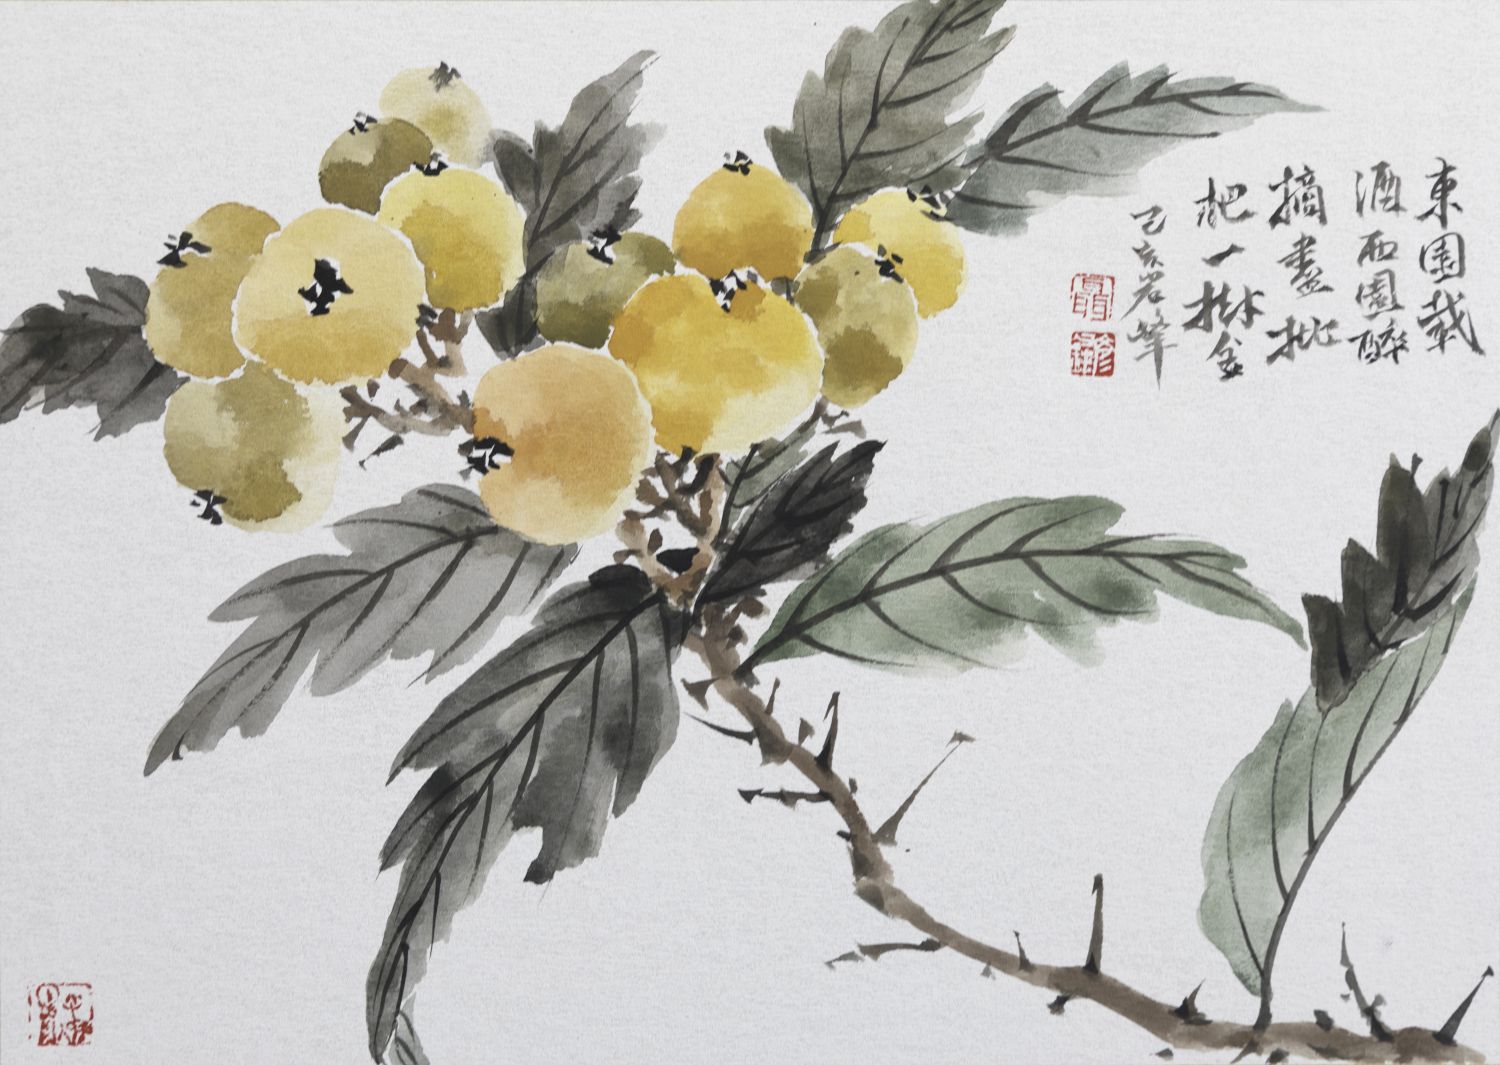 東園載
酒西園醉
摘盡枇
杷一樹金
己亥峰